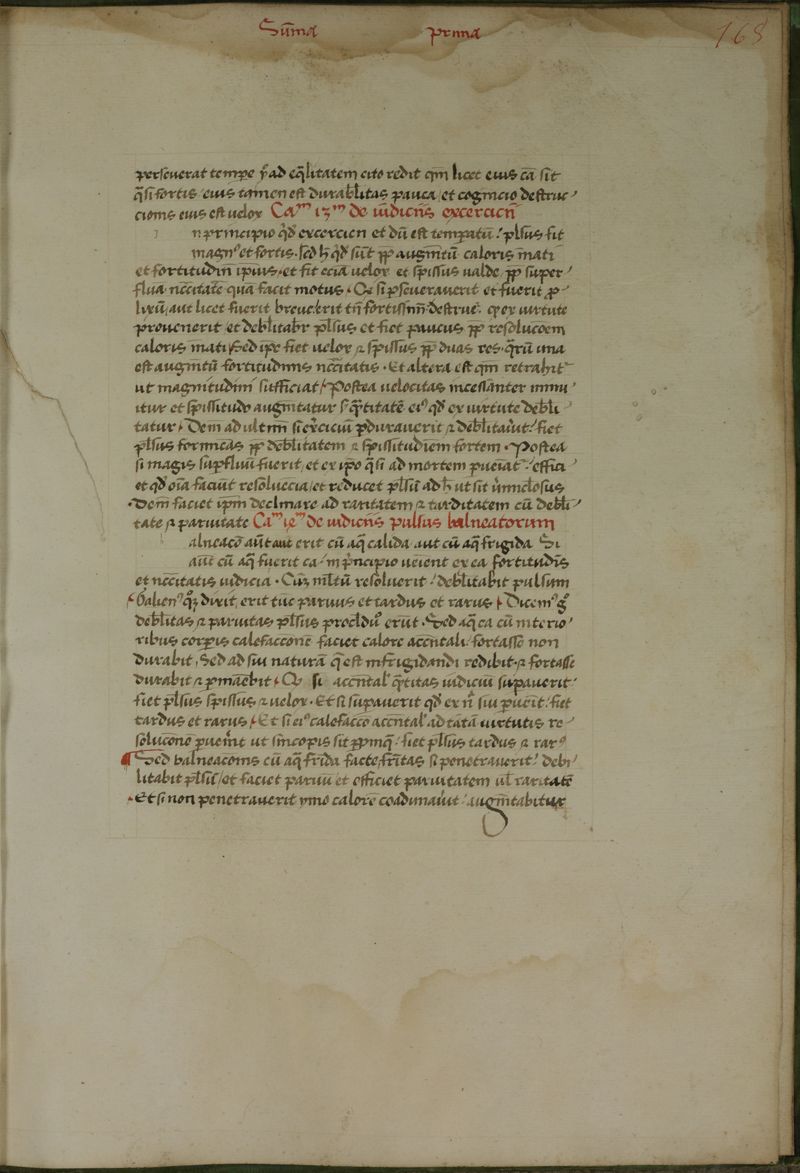 Su̅ma prima 168
perseverat tempe ꝛ ad eq̅litatem cito redit qm̅ licet eius ca̅ sit
q̅si fortis eius tamen est durab̅litas pauca et cognicio destruc
cionis eius est uelox Ca̅m 13m de iudiciis exercicii
n principio q̅d exercicii et du̅ est temp̅atu̅ pl̅sus fit
magn᾽ et fortis. sed h̅ q̅d sunt pp̅ augm̅tu̅ caloris n̅ati
et fortitudin̅ ipius et fit ecia̅ uelox et spissus ualde pp̅ super
flua̅ nccitate̅ qua̅ facit motus Q si p̅severaverit et fuerit p̅
lixu̅ aut licet fuerit breue erit tn̅ fortissim̅ destrue ex uirtute
provenerit et deb̅litabr pl̅sus et fiet paucus pp̅ resoluco̅em
caloris n̅ati sed ipe fiet uelox ⁊ spissus pp̅ duas res q̅ru̅ una
est augm̅tu̅ fortitudinis nccitatis. Et altera est qm̅ retrahit
ut magnitudini sufficiat Postea velocitas incessanter minu
itur et spissitudo augm̅tatur s̅ q̅titate̅ ei᾽ q̅d ex uirtute debli
tatur. Dem ad ultm̅ si ex̅ciciu̅ p̅duraverit ⁊ deblitav̅it fiet
pl̅sus formicas pp̅ deb̅litatem ⁊ spissitudiem fortem. Postea
si magis sup̅fluu̅ fuerit et ex ipo q̅si ad mortem p̅ueiat effici
et q̅d oi̅a faciu̅t resoluccia et reducet pl̅su̅ ad h̅ ut sit v̅miclosus
Dem̅ faciet ipm̅ declinare ad raritatem ⁊ tarditatem cu̅ debli
tate ⁊ paruitate Ca̅m 14m de iudiciis pulsus balneatorum
alneaco̅ au̅t aut erit cu̅ aq̅ calida aut cu̅ aq̅ frigida Si
au̅t cu̅ aq̅ fuerit ca in p̅ncipio ueient ex ea fortitudi̅s
et nccitatis iudicia. Cu̅q ml̅tu̅ resoluerit deblitabit pulsum
Galien᾽ q̅ dixit erit tu̅c paruus et tardus et rarus Dicem᾽ g̅
deblitas ⁊ paruitas pl̅sus procl̅du᾽ eru̅t Sed aq̅ ca cu̅ interio
ribus corp̅is calefaccone̅ faciet calore acc̅ntali fortasse non
durabit Sed ad sui natura̅ q̅ est infrigidandi redibit ⁊ fortasse
durabit ⁊ p̅manebit Q si acc̅ntal᾽ q̅titas iudiciu̅ su̅paverit
fiet pl̅sus spissus ⁊ uelox. Et si su̅paverit q̅d ex n̅ sui p̅ueit fiet
tardus et rarus Et si ei᾽ calefacco̅ acc̅ntal᾽ ad tata̅ uirtutis re
solucone̅ p̅uenit ut sincopis sit pp̅inq̅ fiet pl̅sus tardus ⁊ rar᾽
Sed balneaco̅nis cu̅ aq̅ frida facte fri̅tas si penetrauerit debi
litabit pl̅su̅ et faciet paruu̅ et efficiet paruitatem ul̅ raritate̅
Et si non penetraverit ymo calore̅ coadunav̅it augm̅tabitur